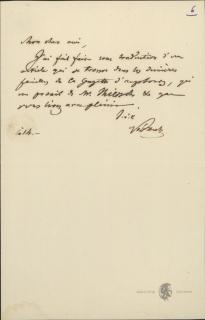 6
Mon cher ami,
J'ai fait faire une traduction d'un
article qui se trouve dans les dernières
feuilles de la Gazette d'Augsbourg, qui
me paraît de Mr. Thiersch & que
vous lirez avec plaisir.